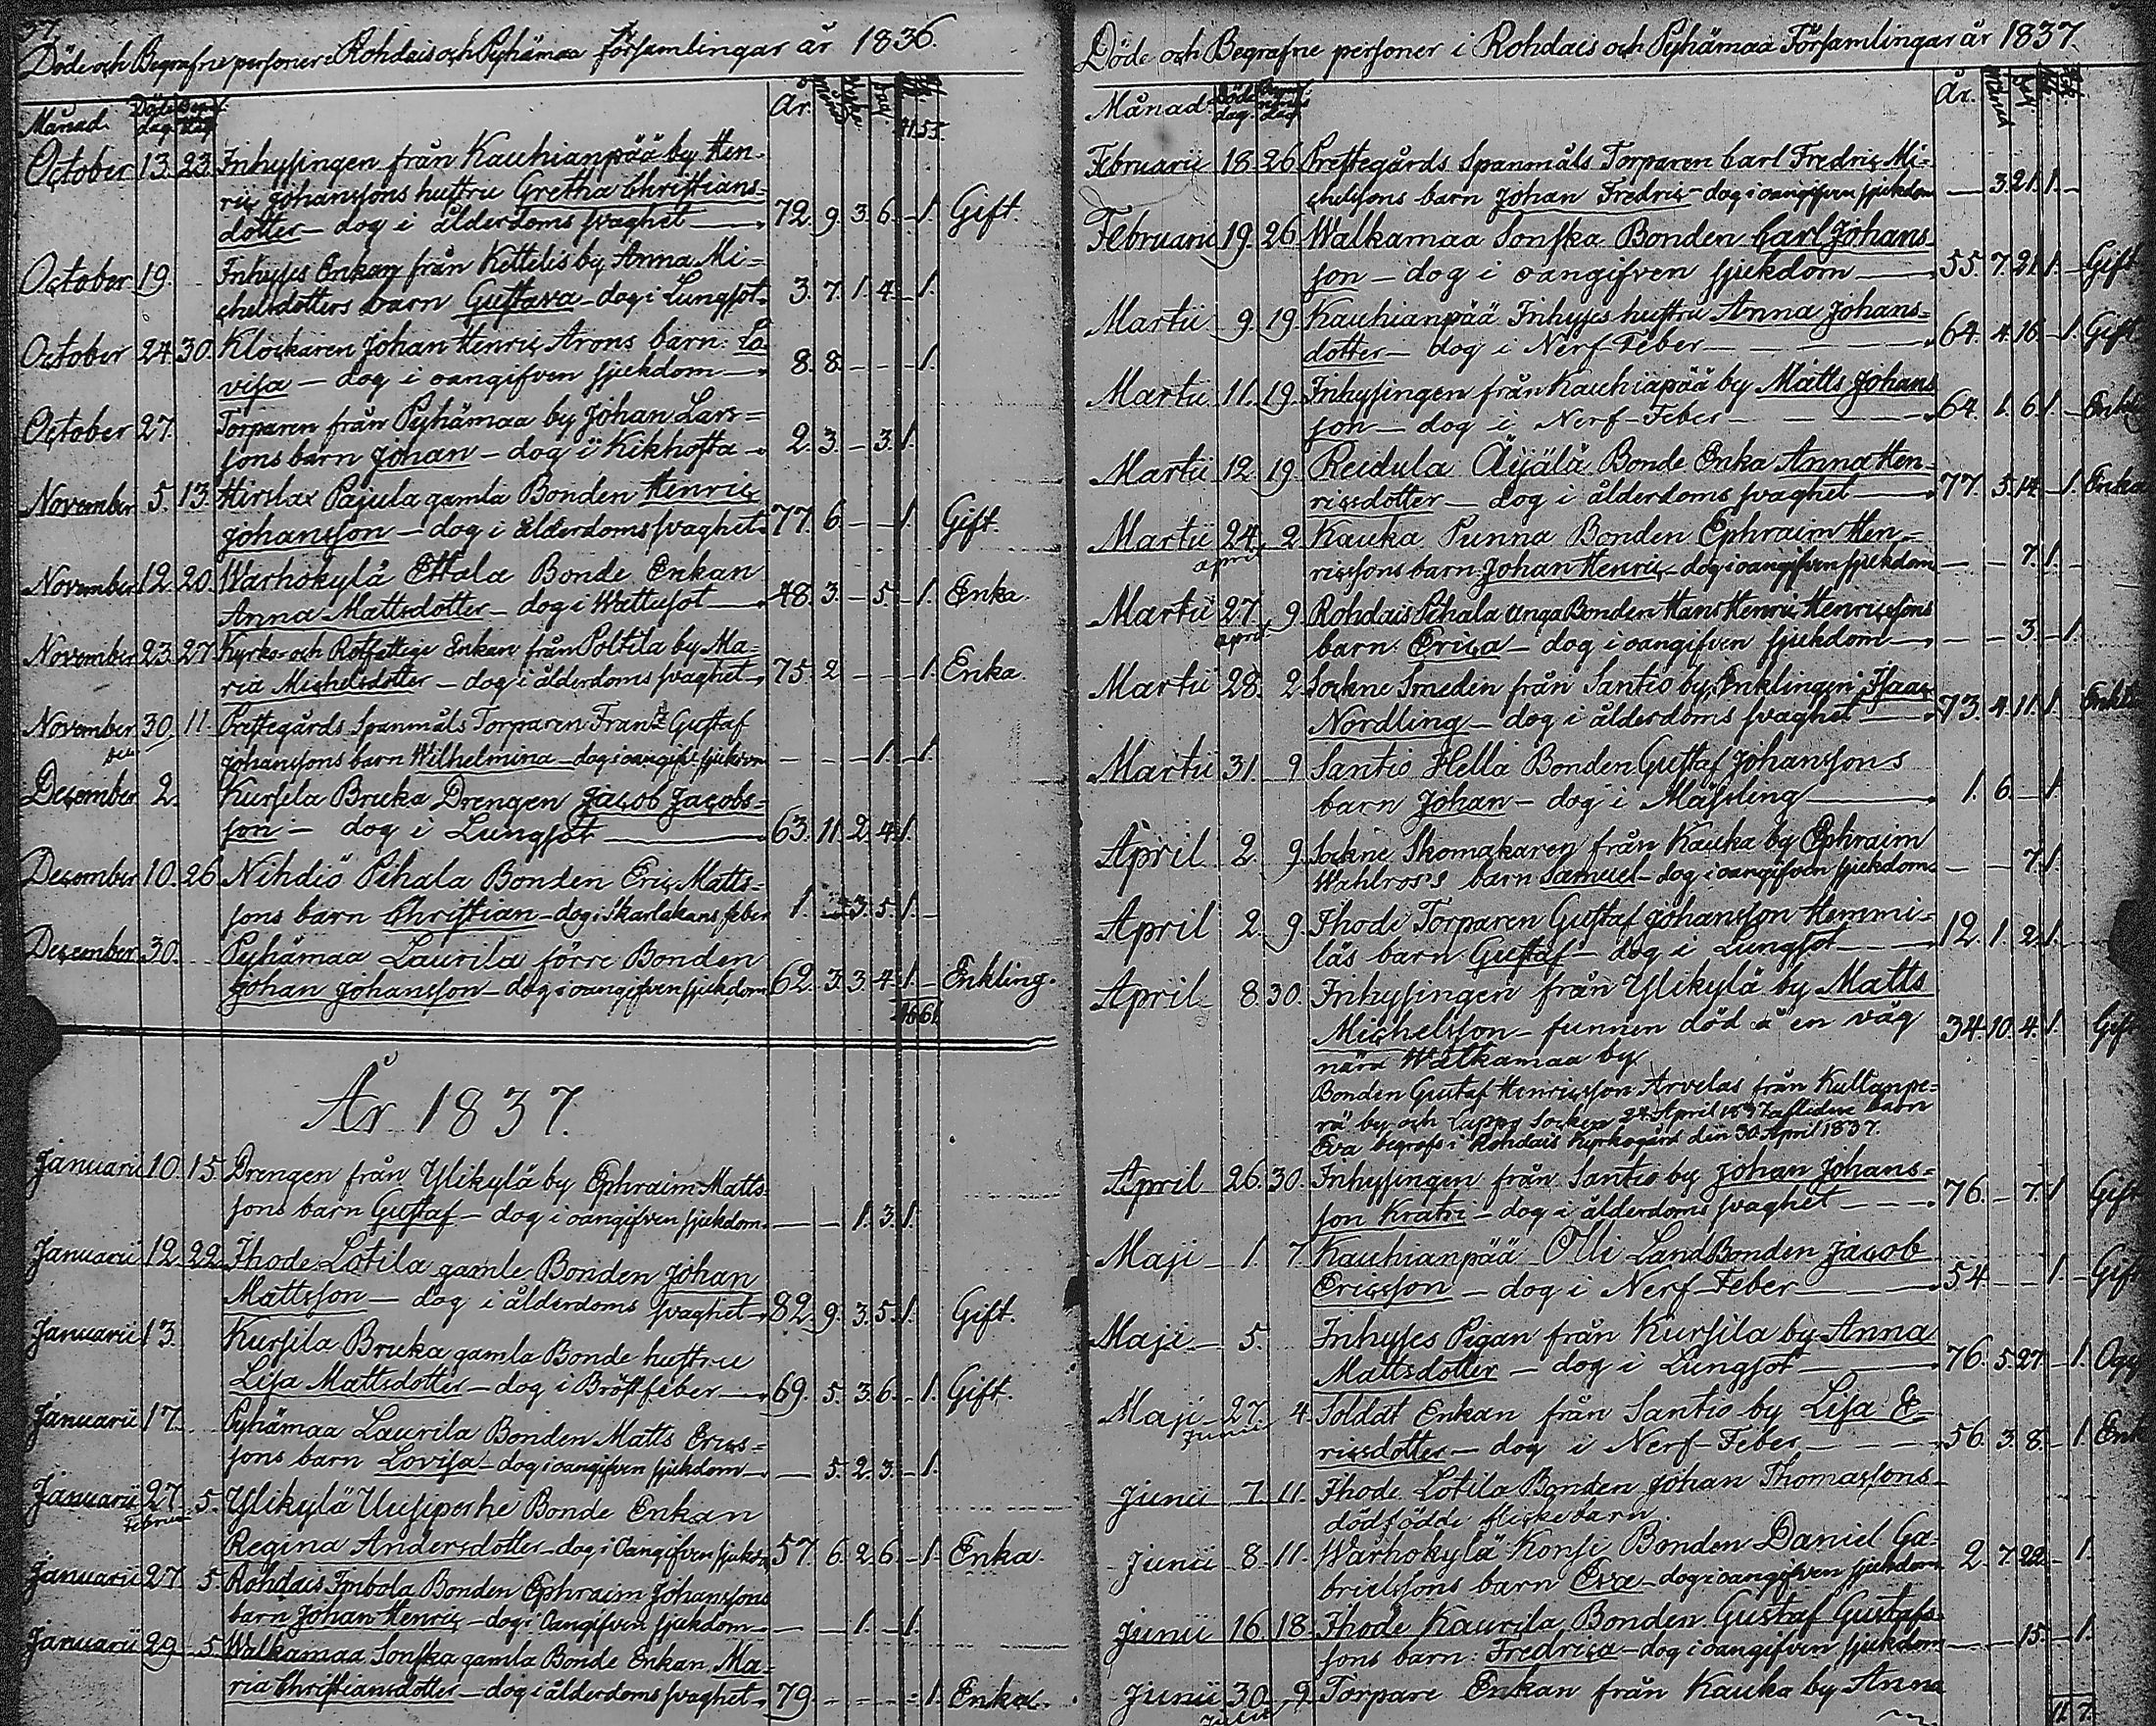 37.
Döde och Begrafne personer i Rohdais och Pyhämaa församlingar år 1836.
Månad. Döds dag. Begraf. dag. År. Månad Vecka Dag
41.55.
October 13. 23. Inhysingen från Kauhianpää by Hen-
ric Johanssons hustru Gretha Christians-
dotter — dog i ålderdoms svaghet — 72. 9. 3. 6. — 1. Gift.
October 19. Inhyses Enkan från Kettelis by Anna Mi-
chelsdotters barn Gustava — dog i Lungsot. 3. 7. 1. 4. — 1.
October 24. 30. Klockaren Johan Henric Arons barn: Lo-
visa — dog i oangifven sjukdom — 8. 8. — — — 1.
October 27. Torparen från Pyhämaa by Johan Lars-
sons barn Johan — dog i Kikhosta — 2. 3. — 3. 1.
November 5. 13. Hirslax Pajula gamla Bonden Henric
Johansson — dog i ålderdoms svaghet 77. 6. — — 1. Gift.
November 12. 20. Warhokylä Ettala Bonde Enkan
Anna Mattsdotter — dog i Wattusot — 48. 3. — 5. — 1. Enka.
November 23. 27. Kyrko- och Rotfattige Enkan från Poltila by Ma-
ria Michelsdotter — dog i ålderdoms svaghet — 75. 2. — — — 1. Enka.
November 30. 11. Prestegårds Spanmåls Torparen Frans Gustaf
dec
Johanssons barn Wilhelmina — dog i oangifv. sjukdom — — — 1. — 1.
December 2. Kursila Bruka Drengen Jacob Jacobs-
son — dog i Lungsot — 63. 11. 2. 4. 1.
December 10. 26. Nihdiö Pihala Bonden Eric Matts-
sons barn Christian — dog i Skarlakans feber 1. 3. 5. 1. —
December 30. Pyhämaa Laurila förre Bonden
Johan Johansson — dog i oangifven sjukdom 62. 3. 3. 4. 1. — Enkling.
46 61
År 1837.
Januarii 10. 15. Drengen från Ylikylä by Ephraim Matts-
sons barn Gustaf — dog i oangifven sjukdom. — — 1. 3. 1.
Januarii 12. 22. Ihode Lotila gamle Bonden Johan
Mattsson — dog i ålderdoms svaghet — 82. 9. 3. 5. 1. Gift.
Januarii 13. Kursila Bruka gamla Bonde hustru
Lisa Mattsdotter — dog i Bröstfeber — 69. 5. 3. 6. — 1. Gift.
Januarii 17. Pyhämaa Laurila Bonden Matts Erics-
sons barn Lovisa — dog i oangifven sjukdom — — 5. 2. 3. — 1.
Januarii 27. 5. Ylikylä Uusiporhe Bonde Enkan
Februarii
Regina Andersdotter — dog i Oangifven sjukdom 57. 6. 2. 6. — 1. Enka.
Januarii 27. 5. Rohdais Imbola Bonden Ephraim Johanssons
barn Johan Henric — dog i Oangifven sjukdom — — 1. — 1.
Januarii 29. 5. Walkamaa Sonska gamla Bonde Enkan Ma-
ria Christiansdotter — dog i ålderdoms svaghet. 79. — — — — 1. Enka.
Döde och Begrafne personer i Rohdais och Pyhämaa Församlingar år 1837.
Månad. Döds dag. Begrafnings dag. År. Månad Dag
Februarii 18. 26. Prestegårds Spanmåls Torparen Carl Fredric Mi-
chelssons barn Johan Fredric — dog i oangifven sjukdom — 3. 21. 1. —
Februarii 19. 26. Walkamaa Sonska Bonden Carl Johans-
son — dog i oangifven sjukdom — 55. 7. 21. 1. — Gift
Martii 9. 19. Kauhianpää Inhyses hustru Anna Johans-
dotter — dog i Nerf-Feber — 64. 4. 16. — 1. Gift
Martii 11. 19. Inhysingen från Kauhiapää by Matts Johans-
son — dog i Nerf-Feber — 64. 1. 6. 1. — Enkling
Martii 12. 19. Reidula Äijälä Bonde Enka Anna Hen-
ricsdotter — dog i ålderdoms svaghet — 77. 5. 14. — 1. Enka
Martii 24. 2. Kauka Punna Bonden Ephraim Hen-
april
ricssons barn Johan Henric — dog i oangifven sjukdom — — 7. 1.
Martii 27. 9. Rohdais Pihala unga Bonden Hans Henric Henricssons
april
barn: Erica — dog i oangifven sjukdom — — — 3. — 1.
Martii 28. 2. Sockne Smeden från Santio by, Enklingen Isaac
Nordling — dog i ålderdoms svaghet — 73. 4. 11. 1. Enkling
Martii 31. 9. Santio Hella Bonden Gustaf Johanssons
barn Johan — dog i Mässling — 1. 6. — 1
April 2. 9. Sockne Skomakaren från Kauka by Ephraim
Wahlros's barn Samuel — dog i oangifven sjukdom. — — 7. 1.
April 2. 9. Ihode Torparen Gustaf Johansson Hemmi-
läs barn Gustaf — dog i Lungsot — 12. 1. 2. 1.
April 8. 30. Inhysingen från Ylikylä by Matts
Michelsson — funnen död å en väg 34. 10. 4. 1. Gift
nära Walkamaa by
Bonden Gustaf Henricsson Arvelas från Kullanpe-
rä by och Lappo Socken 24 April 1837 aflidne barn
Eva begrofs i Rohdais kyrkogård den 30 April 1837.
April 26. 30. Inhysingen från Santio by Johan Johans-
son Kratri — dog i ålderdoms svaghet — 76. — 7. 1 Gift
Maji 1. 7. Kauhianpää Olli LandBonden Jacob
Ericsson — dog i Nerf-Feber — 54. — — 1. — Gift
Maji 5. Inhyses Pigan från Kursila by Anna
Mattsdotter — dog i Lungsot — 76. 5. 27. — 1. Og
Maji 27. 4. Soldat Enkan från Santio by Lisa E-
Junii
ricsdotter — dog i Nerf-Feber — 56. 3. 8. — 1. Enk
Junii 7. 11. Ihode Lotila Bonden Johan Thomassons
dödfödde flickebarn.
Junii 8. 11. Warhokylä Konsi Bonden Daniel Ga-
brielssons barn Eva — dog i oangifven sjukdom 2. 7. 22. — 1.
Junii 16. 18. Ihode Kaurila Bonden Gustaf Gustafs-
sons barn: Fredrica — dog i oangifven sjukdom — — 15. — 1.
Junii 30. 9. Torpare Enkan från Kauka by Anna
Julii
11. 7.